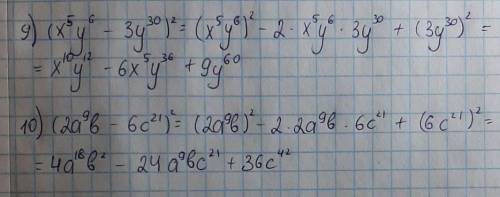 9) (x⁵y⁶ - 3y³⁰)² = (x⁵y⁶)² - 2 · x⁵y⁶ · 3y³⁰ + (3y³⁰)² =
= x¹⁰y¹² - 6x⁵y³⁶ + 9y⁶⁰
10) (2a⁹b - 6c²¹)² = (2a⁹b)² - 2 · 2a⁹b · 6c²¹ + (6c²¹)² =
= 4a¹⁸b² - 24a⁹bc²¹ + 36c⁴²